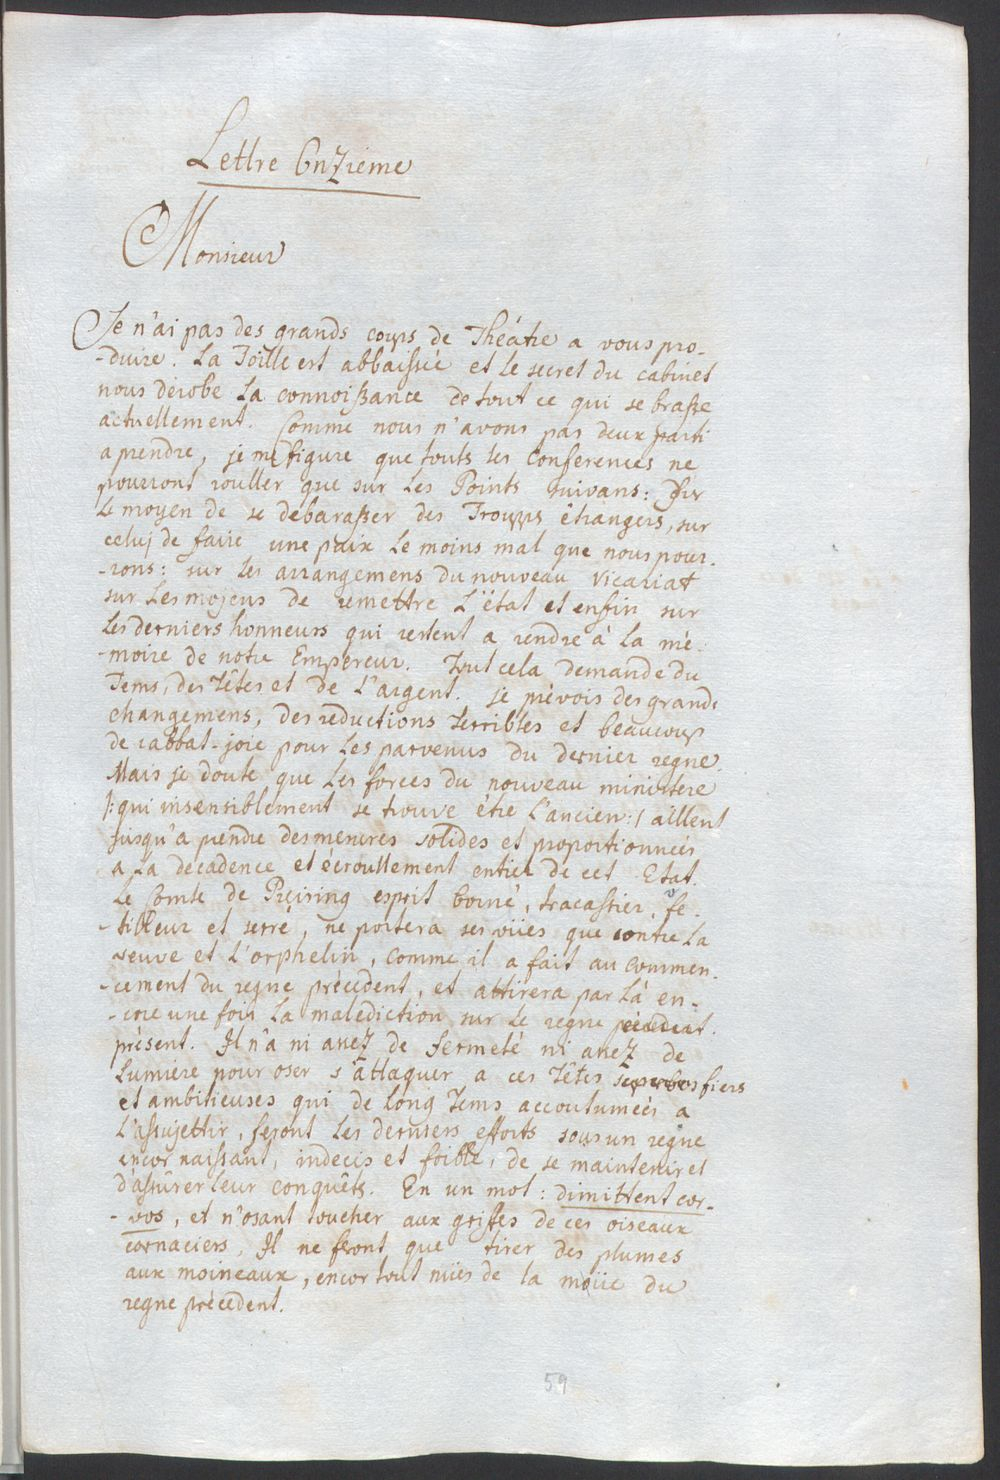 Lettre Onzieme
Monsieur
Je n'ai pas des grands coups de Théátre a vous pro-
-duire. La Toille est abbaissée et le secret du cabinet
nous dérobe La connoißance de tout ce qui se braße
actuellement. Comme nous n'avons pas deux parti
a prendre, je me figure que touts les Conferences ne
pourront rouller que sur Les Points suivans: Sur
Le moyen de se débaraßer des Troupps étrangers, sur
celuj de faire une paix Le moins mal que nous pour-
-rons: sur les arrangemens du nouveau Vicariat
sur Les mojens de remettre L'état et enfin sur
Les derniers honneurs qui restent a rendre à La mé-
-moire de notre Empereur. Tout cela demande du
Tems, des Têtes et de L'argent. je prévois des grands
changemens, des reductions terribles et beaucoup
de rabbat-joie pour Les parvenus du dernier regne.
Mais je doute que Les forces du nouveau ministere
/: qui insensiblement se trouve étre L'ancien :/ aillent
jusqu'a prendre des mesures solides et proportionnées
a La décadence et écroullement entier de cet Etat.
Le Comte de Preising esprit borné, tracassier, fé-
-tilleur et serré, ne portera ses vüies que contre La
veuve et L'orphelin, comme il a fait au commen-
-cement du regne précedent, et attirera par Là en-
-core une fois La malediction sur Le regne précedent.
présent. Il n'â ni assez de fermeté ni assez de
Lumiere pour oser s'attaquer a ces Têtes superbes fiers
et ambitieuses qui de long Tems accoutumées a
L'assujettir, feront Les derniers efforts sous un regne
encor naissant, indecis et foible, de se maintenir et
d'assûrer leur conquêts. En un mot: dimittent cor-
-vos, et n'osant toucher aux griffes de ces oiseaux
carnaciers, Il ne feront que tirer des plumes
aux moineaux, encor tout nües de la müie du
regne précedent.
59